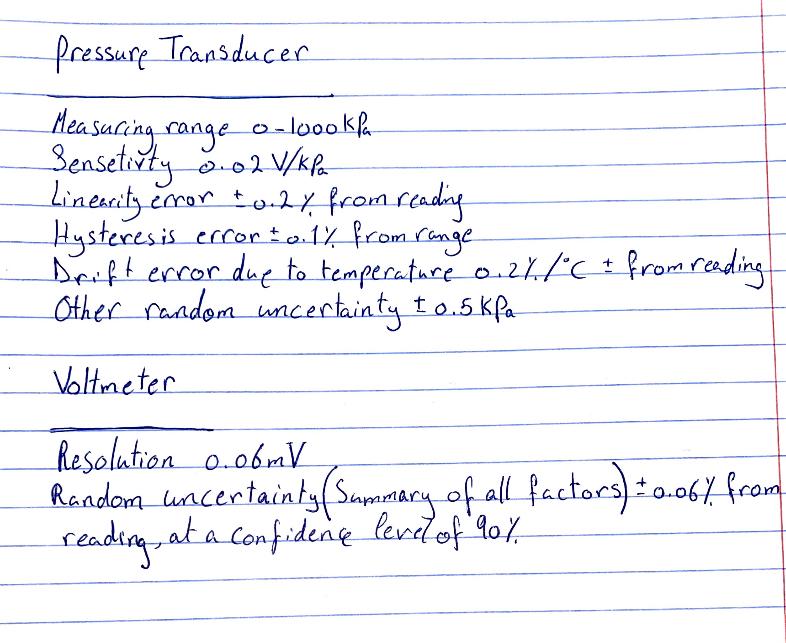 Pressure Transducer
Measuring range 0-1000 kPa
Sensetivty 0.02 V/kPa
Linearity error ± 0.2% from reading
Hysteresis error ± 0.1% from range
Drift error due to temperature 0.2%/°C ± from reading
Other random uncertainty ± 0.5 kPa
Voltmeter
Resolution 0.06mV
Random uncertainty (Summary of all factors) ± 0.06% from
reading, at a confidence level of 90%